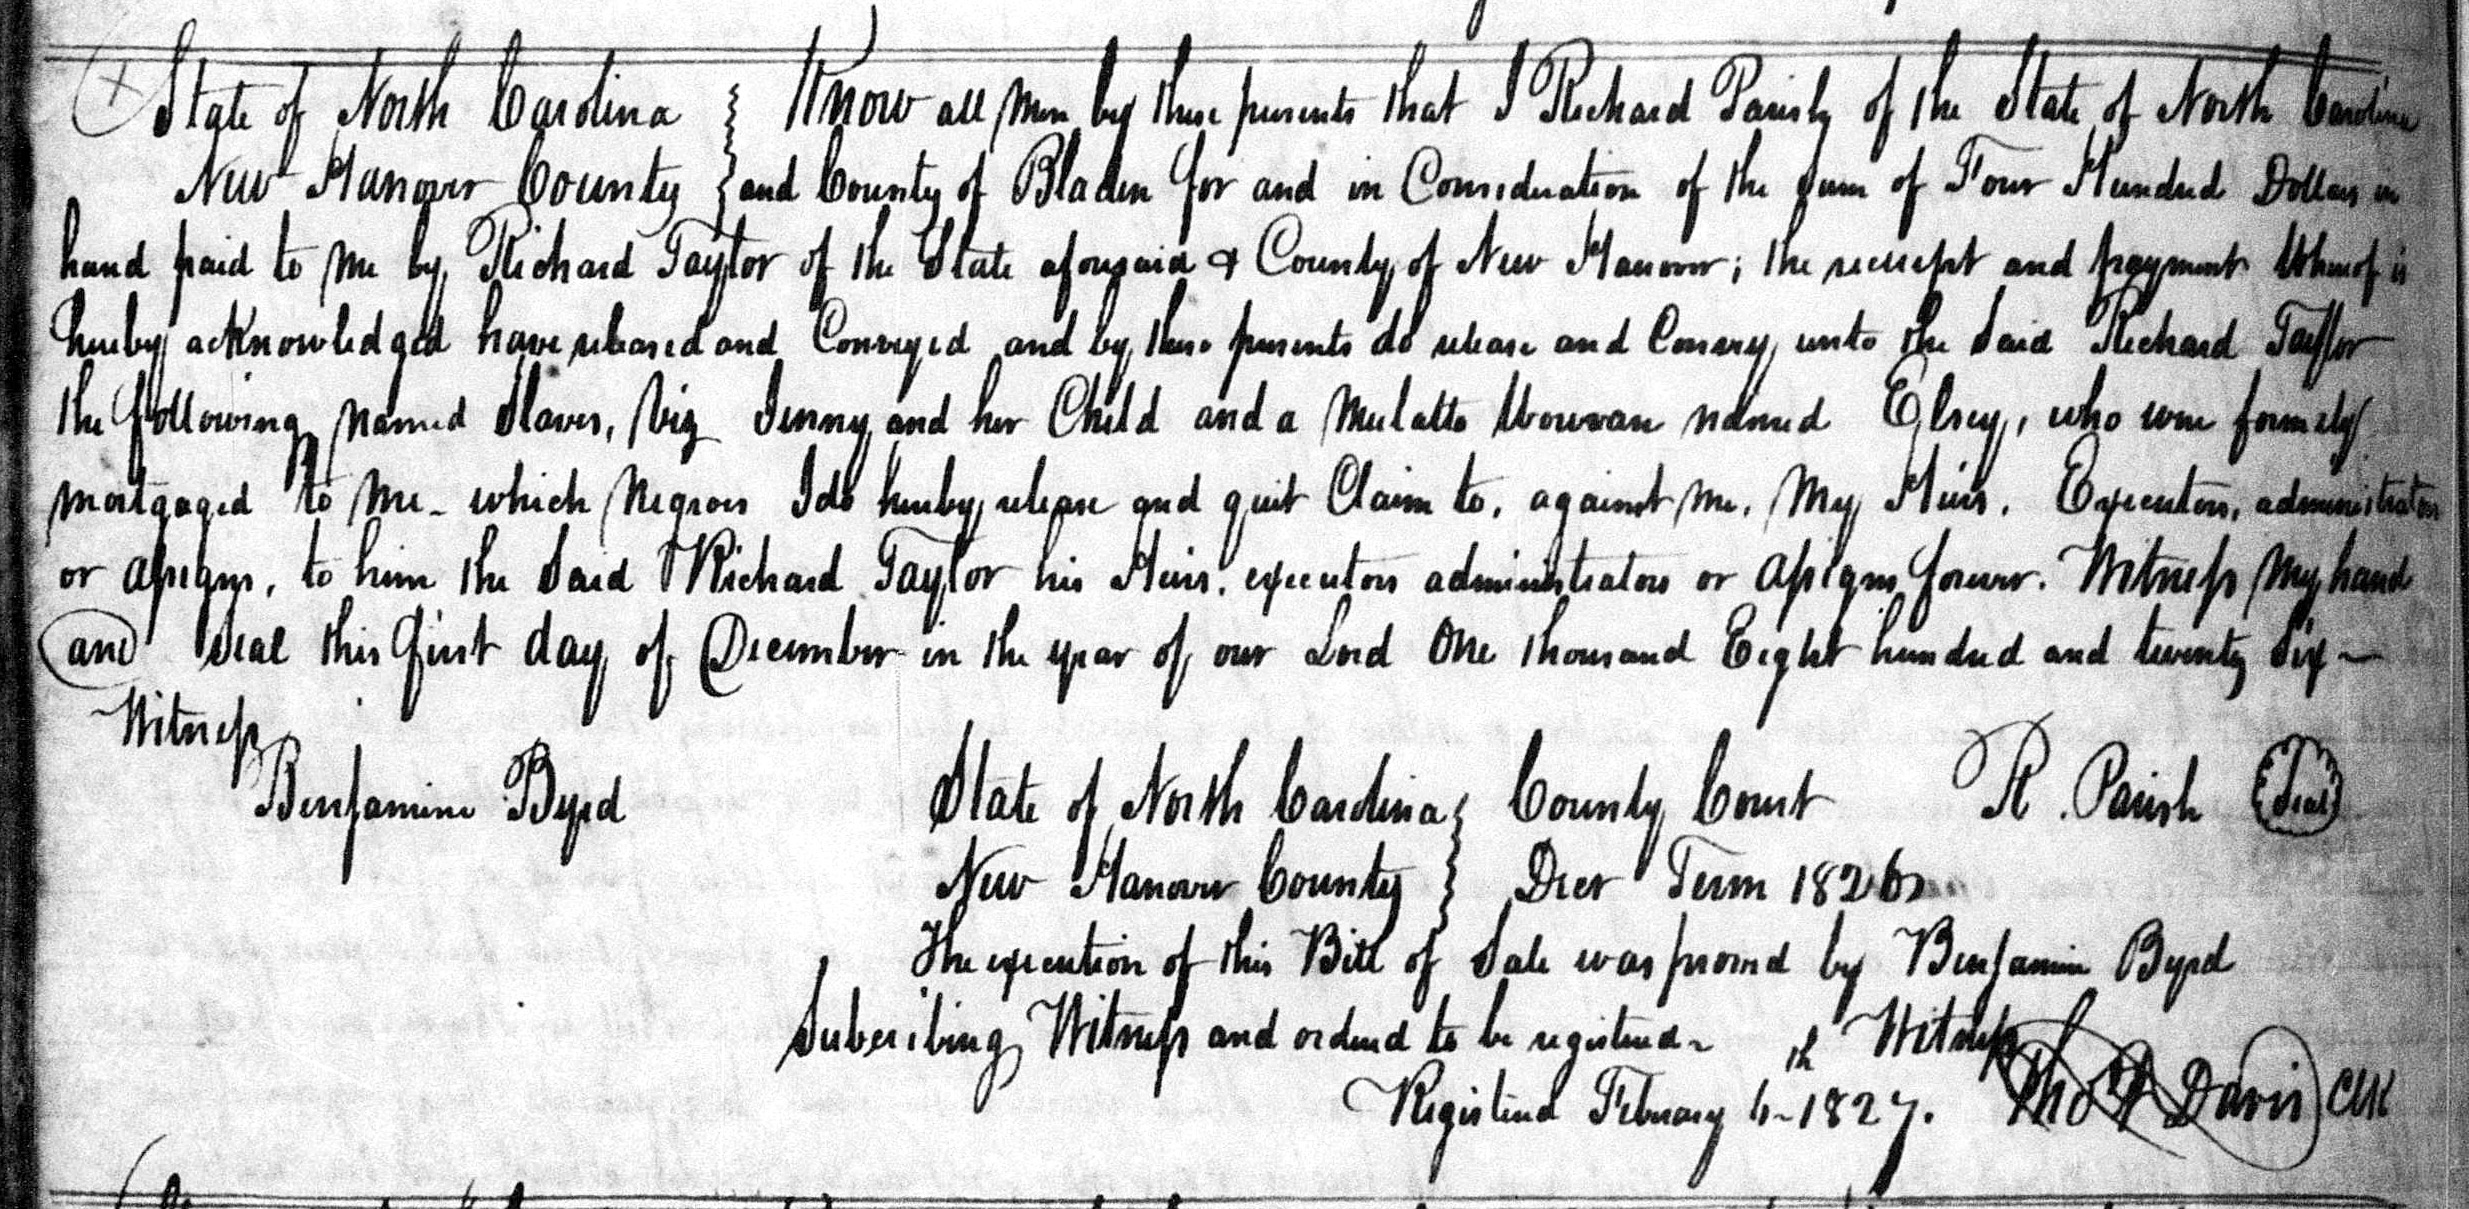 State of North Carolina } Know all Men by these presents that I Richard Parish of the State of North Carolina
New Hanover County } and County of Bladen for and in Consideration of the sum of Four Hundred Dollars in
hand paid to me by Richard Taylor of the State aforesaid & County of New Hanover; the receipt and payment Whereof is
hereby acknowledged have released and Conveyed and by these presents do release and Convey unto the Said Richard Taylor
the following named Slaves, Viz Jenny and her Child and a Mulatto Woman named Elsey, who were formely
mortgaged to Me - which Negroes I do hereby release and quit Claim to, against me, My Heirs, Executors, administrators
or assigns, to him the Said Richard Taylor his Heirs, executors administrators or assigns forever. Witness My hand
and Seal this first day of December in the year of our Lord One thousand Eight hundred and twenty Six -
Witness
Benjamine Byrd State of North Carolina } County Court R. Parish Seal
New Hanover County } Decr Term 1826
The execution of this Bill of Sale was proved by Benjamin Byrd
Subscribing Witness and ordered to be registered - Witness
Registered February 6th 1827. Tho F Davis Clk